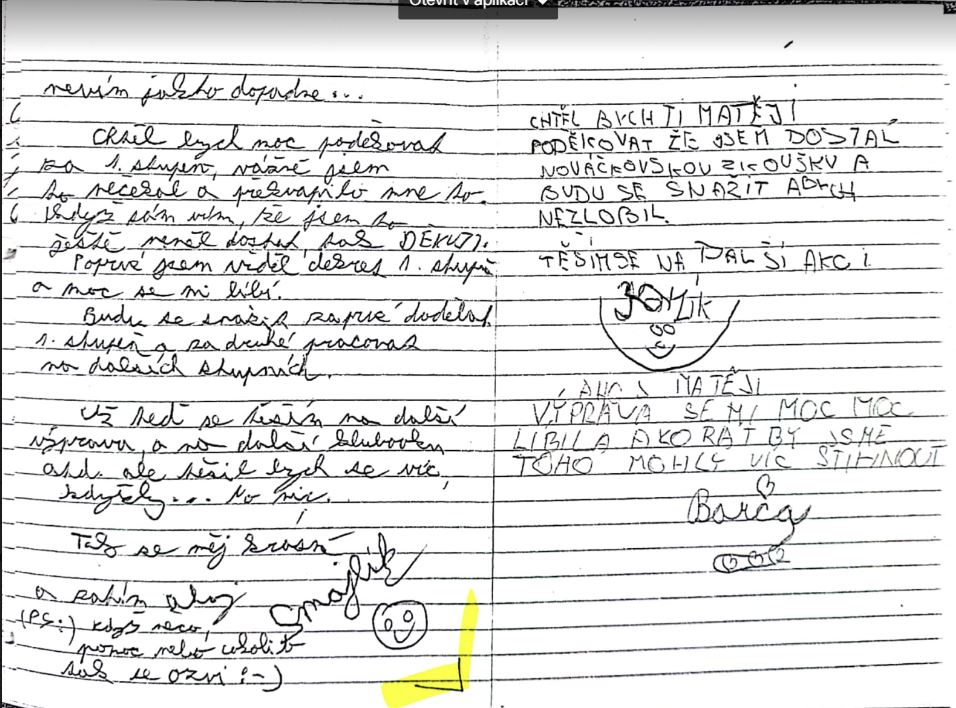 Otevřít v aplikaci
nevím jak to dopadne...
Chtěl bych moc poděkovat
za 1. stupeň, vážně jsem
to nečekal a překvapilo mne to.
Když sám vím, že jsem to
ještě neměl dostat, tak DĚKUJI.
Poprvé jsem viděl dekret 1. stupě
a moc se mi líbí.
Budu se snažit zaprvé dodělat
1. stupeň a za druhé pracovat
na dalších stupních.
Už teď se těším na další
výpravu, a na další klubovku
atd. ale těšil bych se víc,
kdyžby... No nic.
Tak se měj krásně
a zatím ahoj
Smajlík
(PS:) když neco,
pomoc nebo cokoliv
tak se ozvi :-)
CHTĚL BYCH TI MATĚJI
PODĚKOVAT ŽE JSEM DOSTAL
NOVÁČKOVSKOU ZKOUŠKU A
BUDU SE SNAŽIT ABYCH
NEZLOBIL.
TĚŠÍM SE NA DALŠÍ AKCI
AHOJ MATĚJI
VÝPRAVA SE MI MOC MOC
LIBILA AKORÁT BY JSME
TOHO MOHLY VÍC STIHNOUT
Barča